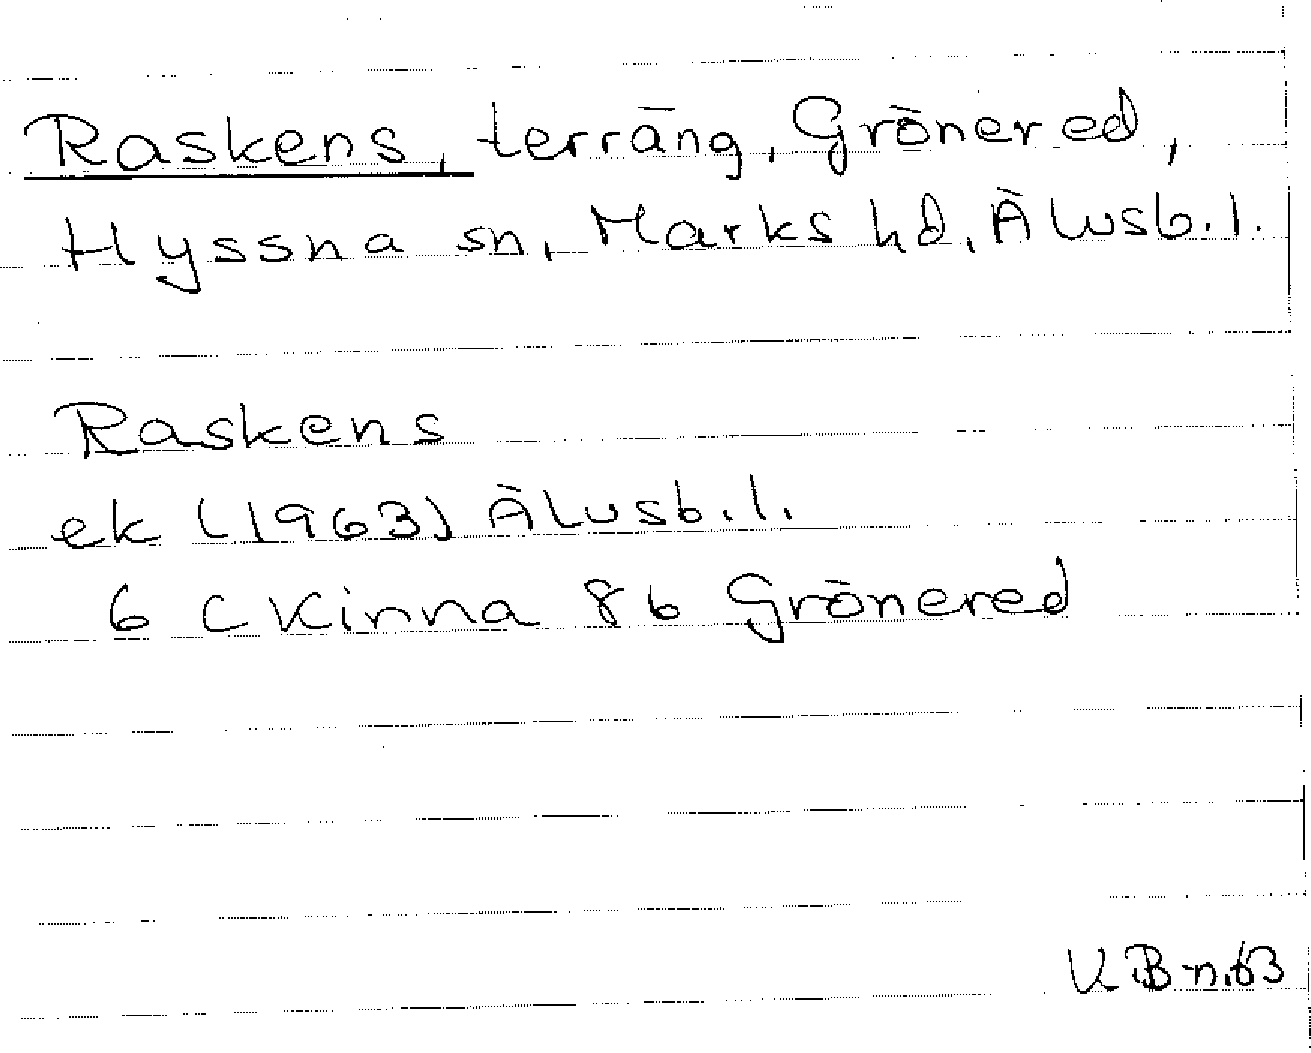 Raskens, terräng, Grönered,
Hyssna sn, Marks hd, Älvsb. l.
Raskens
ek (1963) Älvsb. l.
6 C Kinna 8 b Grönered